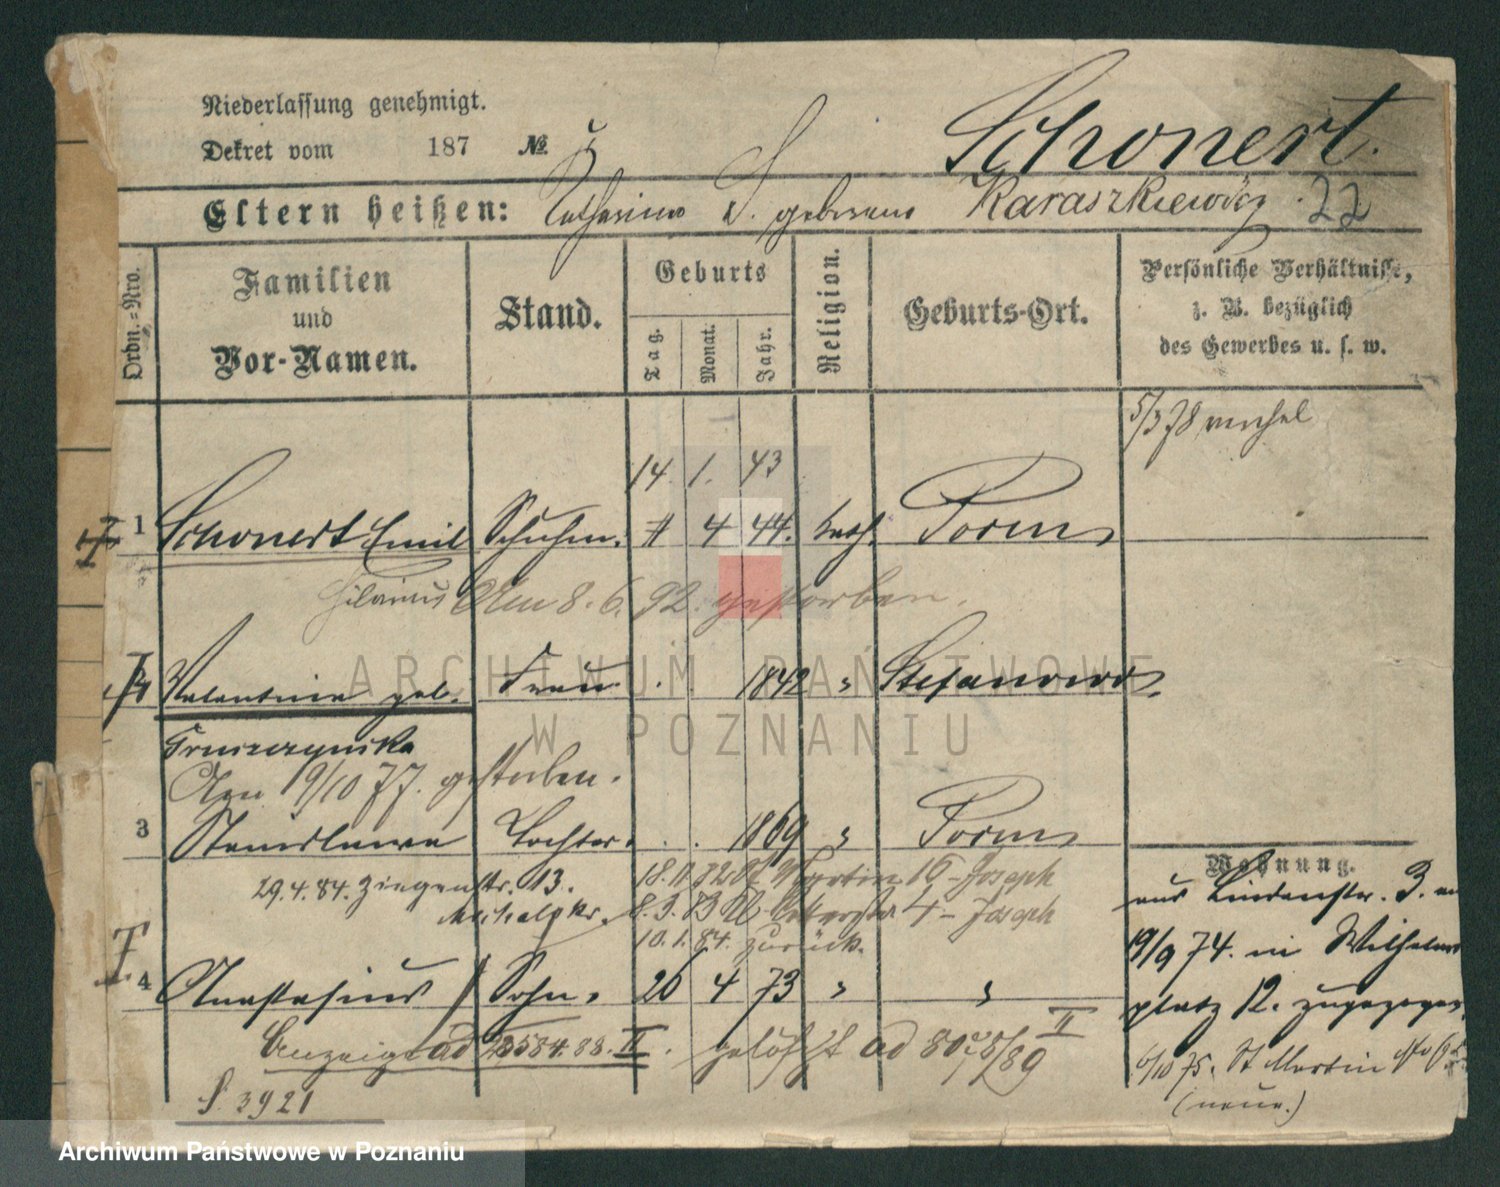 Niederlassung genehmigt.
Dekret vom 187 №
Schonert.
Eltern heißen: Katharina S. geborene Karaszkiewicz. 22
Ordn.-Nro.
Familien
und
Vor-Namen.
Stand.
Geburts
Tag.
Monat.
Jahr.
Religion.
Geburts-Ort.
Persönliche Verhältnisse,
z. B. bezüglich
des Gewerbes u. s. w.
5/3 78
14. 1. 43
1 Schonert Emil Schuhm. 11 4 44. kath. Posen
Hilarius Am 8. 6. 92. gestorben.
Valentina geb. Frau . . 1842 "
Am 19/10 77. gestorben.
3 Stanislawa Tochter . . 1869 " Posen
29.4.84. Ziegenstr. 13.
18.11 82 St Martin 16 - Joseph
8.3.83 4 - Joseph
10.1.84. zurück.
4 Anastasius Sohn. 26 4 73 " "
Anzeige ad 28584.88. II. gelöscht ad 89 II
S. 3921
Wohnung.
aus Lindenstr. 3. am
19/9 74. in Wilhelms
platz 12. zugezogen.
6/10 75. St Martin No
(neue.)
ARCHIWUM PAŃSTWOWE
W POZNANIU
Archiwum Państwowe w Poznaniu